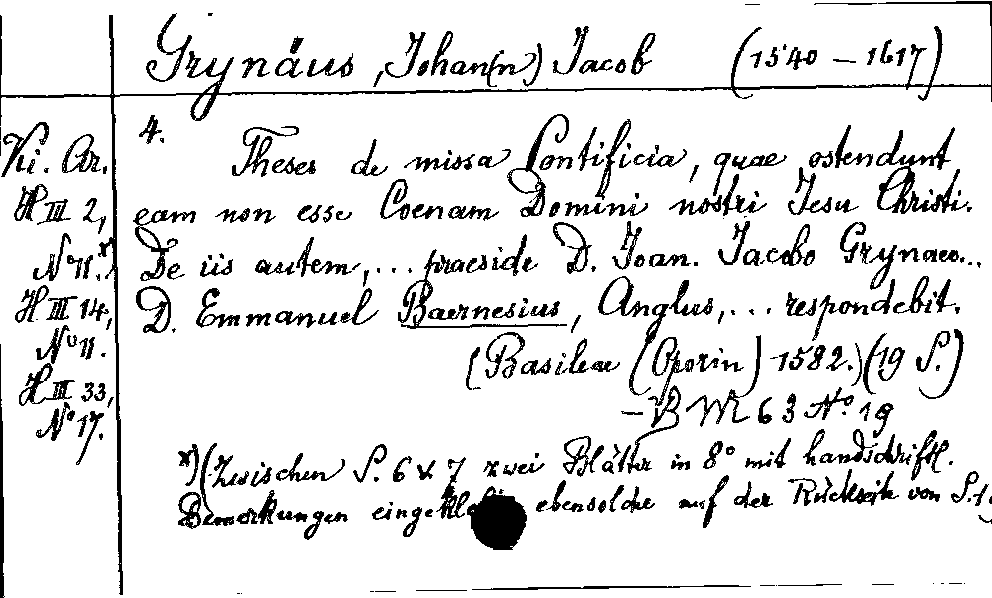 Grynäus, Johan(n) Jacob (1540 – 1617)
4.
Theses de missa Pontificia, quae ostendunt
eam non esse Coenam Domini nostri Jesu Christi.
De iis autem, ... praeside D. Joan. Jacobo Grynaeo...
D. Emmanuel Baernesius, Anglus, ... respondebit.
(Basileae (Oporin) 1582.) (19 S.)
– B M 63 No 19
Ki. Ar.
H III 2,
No 11. x)
H III 14,
No 11.
H III 33,
No 17.
x) (Zwischen S. 6 & 7 zwei Blätter in 8° mit handschriftl.
Bemerkungen ebensolche auf der Rückseite von S. 19